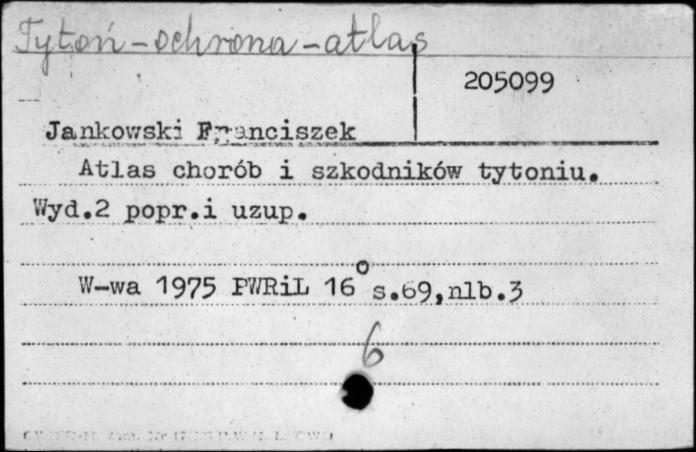 Tytoń-ochrona-atlas
205099
Jankowski Franciszek
Atlas chorób i szkodników tytoniu.
Wyd.2 popr.i uzup.
W-wa 1975 PWRiL 16° s.69,nlb.3
6